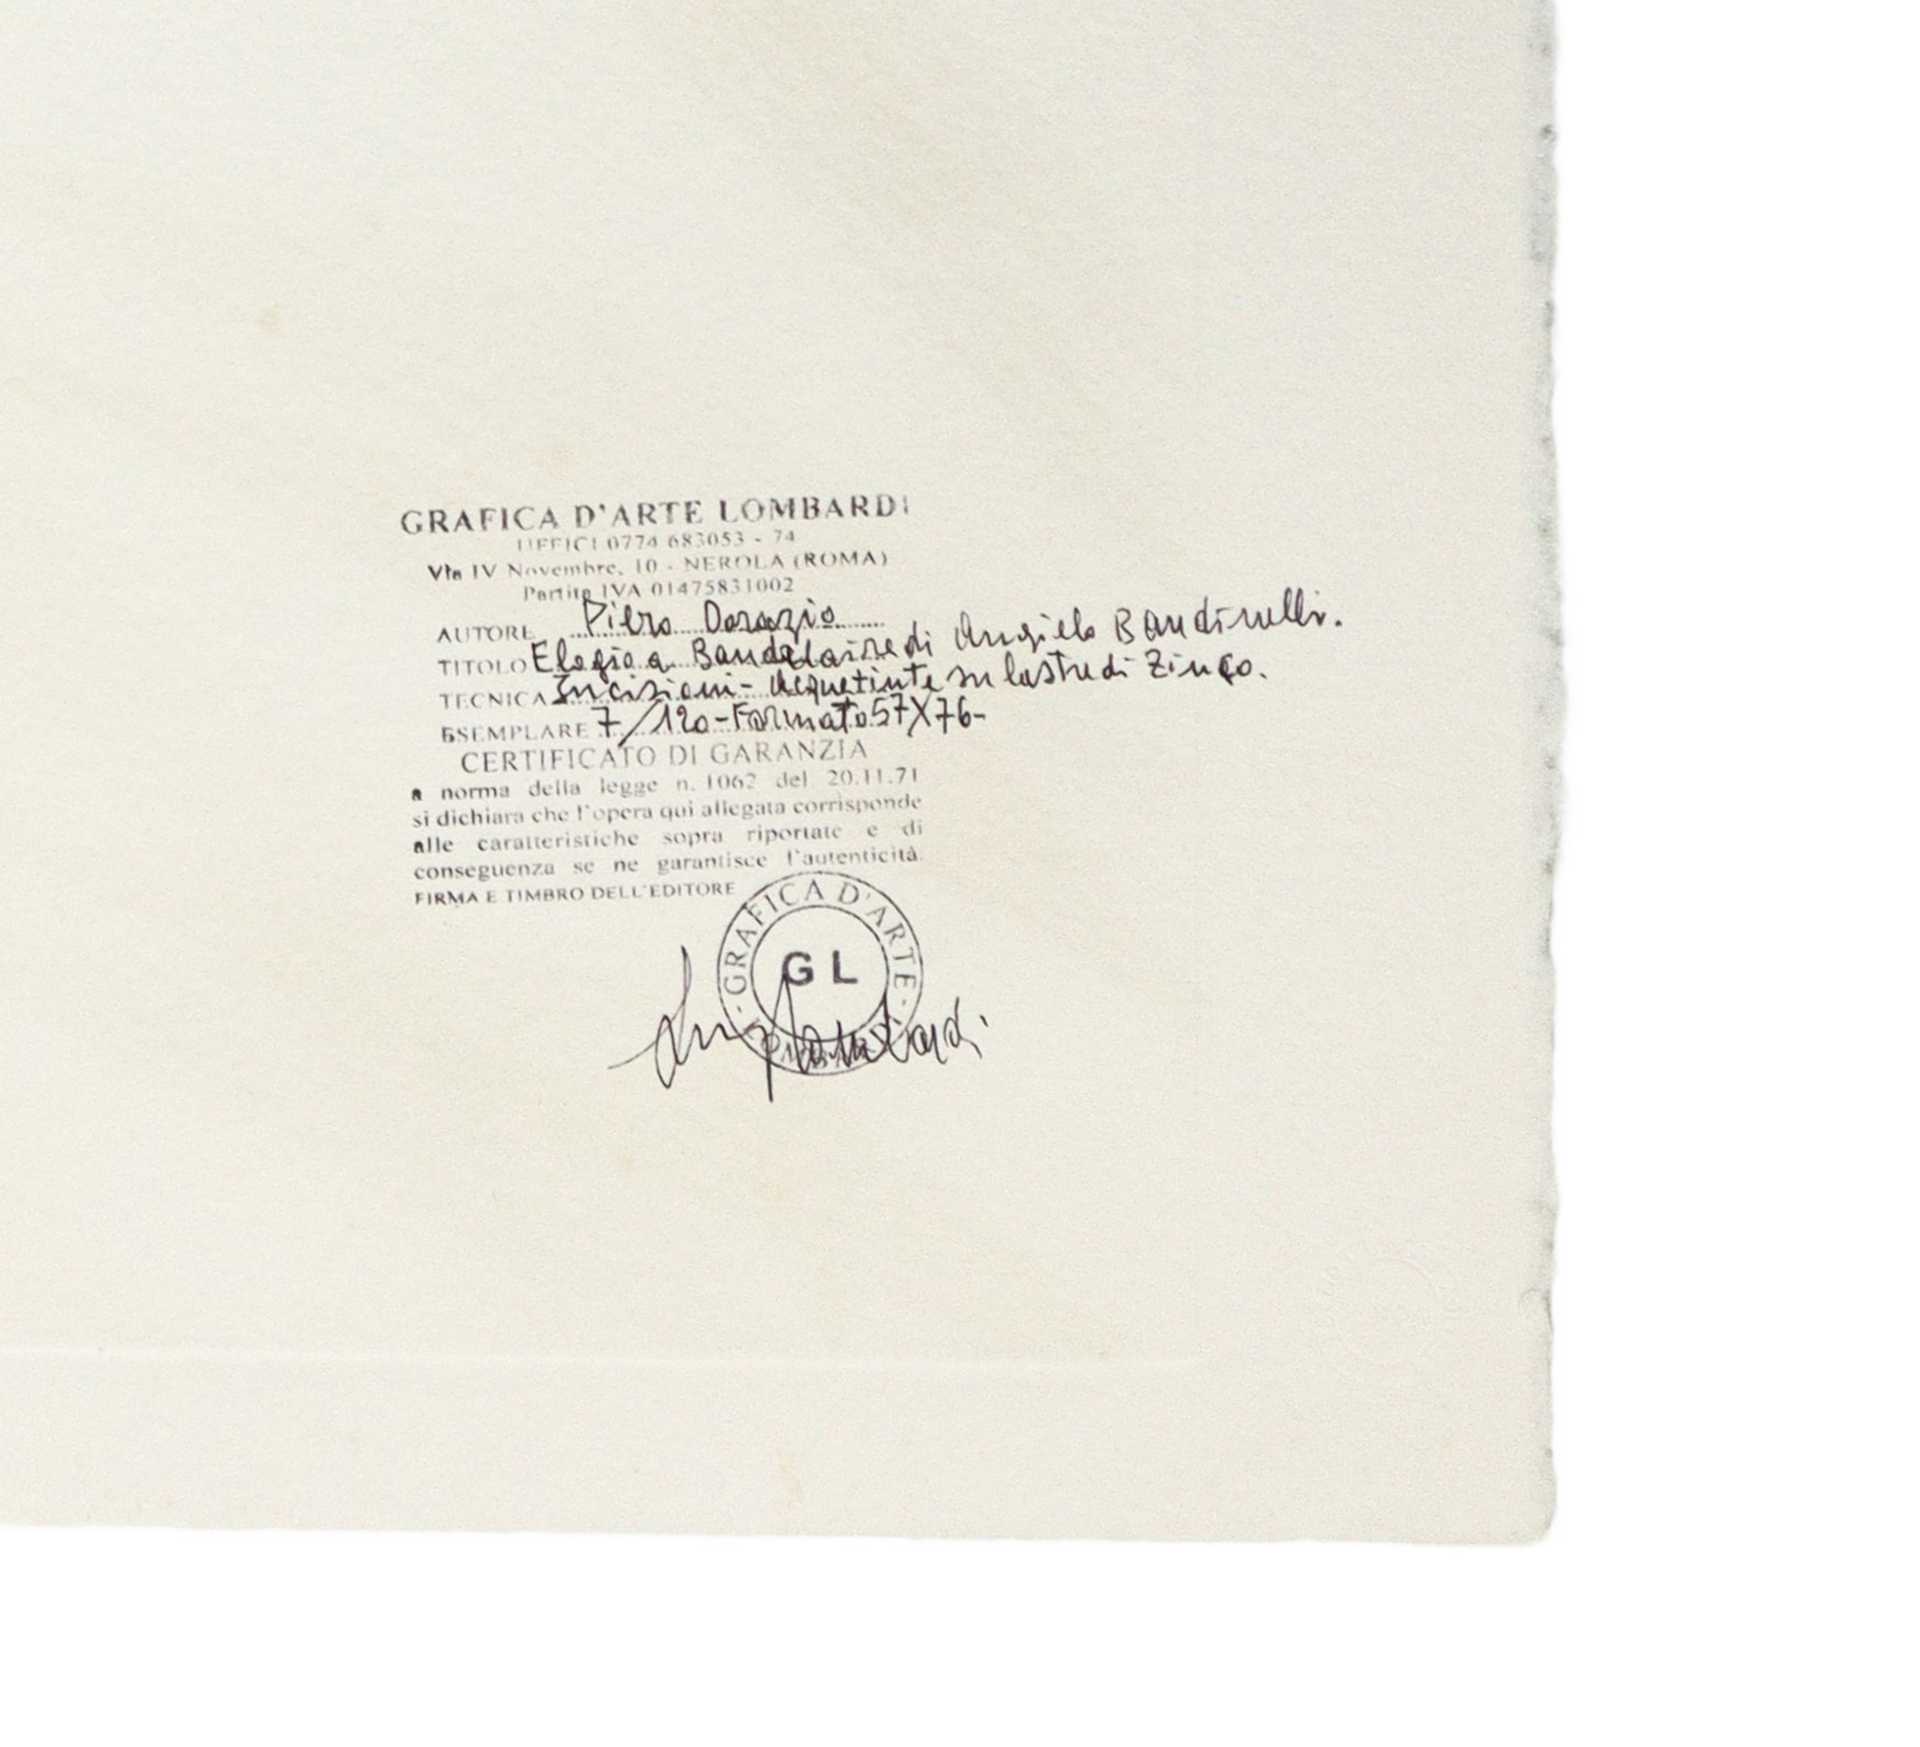 GRAFICA D'ARTE LOMBARDI
UFFICI 0774 683053 - 74
Via IV Novembre, 10 - NEROLA (ROMA)
Partita IVA 01475831002
AUTORE Piero Dorazio
TITOLO Elogio a Baudelaire di Angiolo Bandinelli.
TECNICA Incisioni - Acquetinte su lastre di Zinco.
ESEMPLARE 7/120 - Formato 57X76 -
CERTIFICATO DI GARANZIA
a norma della legge n. 1062 del 20.11.71
si dichiara che l'opera qui allegata corrisponde
alle caratteristiche sopra riportate e di
conseguenza se ne garantisce l'autenticità.
FIRMA E TIMBRO DELL'EDITORE
GRAFICA D'ARTE · LOMBARDI ·
G L
Luigi Lombardi